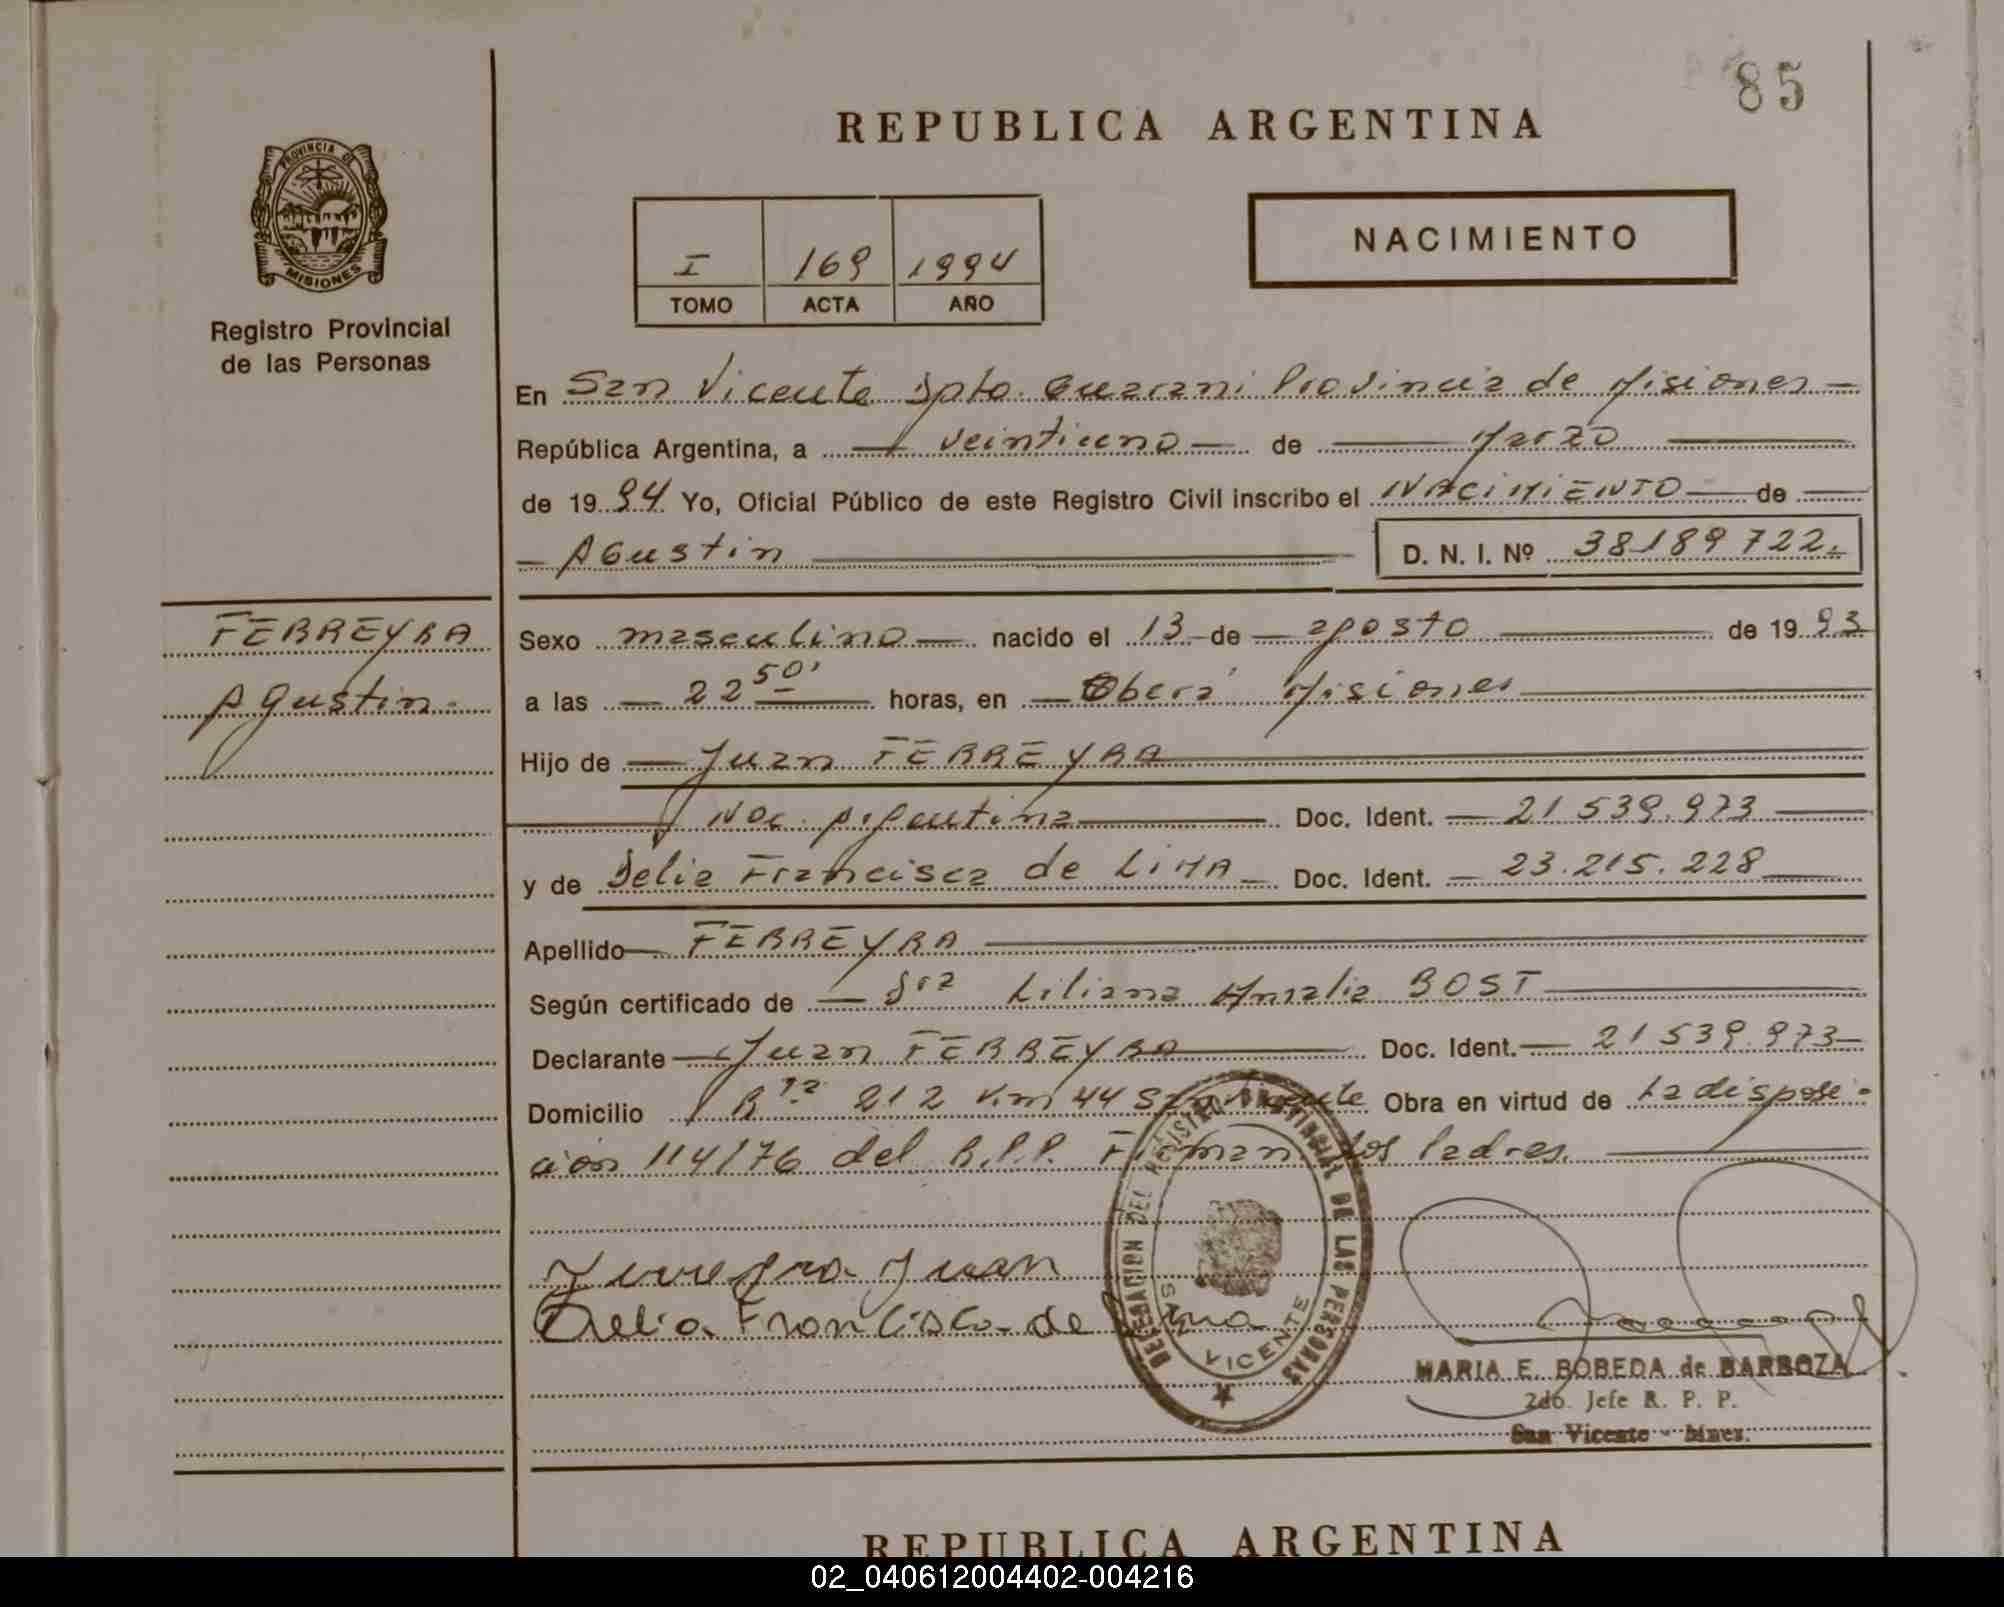 85
REPUBLICA ARGENTINA
PROVINCIA DE MISIONES
Registro Provincial
de las Personas
I 169 1994
TOMO ACTA AÑO
NACIMIENTO
En San Vicente Dpto. Guarani Provincia de Misiones
República Argentina, a veintiuno de Marzo
de 19 94 Yo, Oficial Público de este Registro Civil inscribo el NACIMIENTO de
Agustin D. N. I. Nº 38189722.
FERREYRA
Agustin.
Sexo masculino nacido el 13 de agosto de 19 93
a las 22 50' horas, en Oberá Misiones
Hijo de Juan FERREYRA
Nac. Argentina Doc. Ident. 21 539.973
y de Delia Francisca de LIMA Doc. Ident. 23.215.228
Apellido FERREYRA
Según certificado de Sra Liliana Amalia BOST
Declarante Juan FERREYRA Doc. Ident. 21 539.973
Domicilio Rta 212 Km 44 San Vicente Obra en virtud de La disposi-
ción 114/76 del R.P.P. Firman los Padres.
Ferreyra Juan
Delia Francisca de Lima
DELEGACION DEL REGISTRO PROVINCIAL DE LAS PERSONAS
SAN VICENTE
MARIA E. BOBEDA de BARBOZA
2do. Jefe R. P. P.
San Vicente - Mnes.
REPUBLICA ARGENTINA
02_040612004402-004216